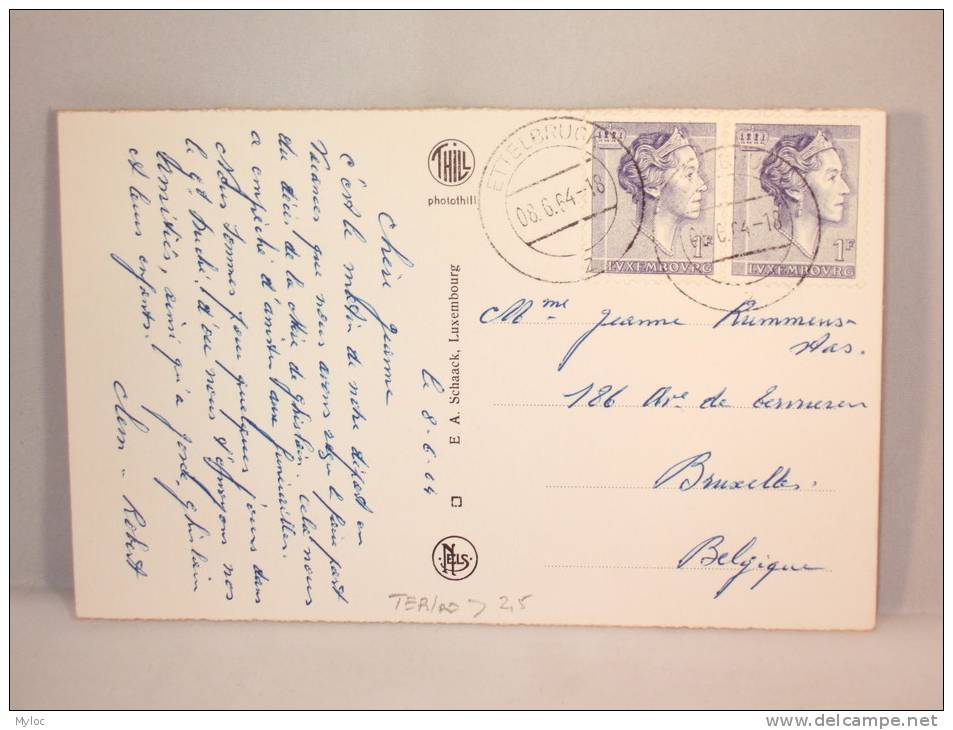 le 8-6-64
Chère Jeanne
C'est le matin de notre départ en
vacances que nous avons reçu le faire part
du décès de la Mère de Ghislain. Cela nous
a empêché d'assister aux funérailles.
Nous sommes pour quelques jours dans
le Gd Duché d'où nous t'envoyons nos
Amitiés, ainsi qu'à Ghislain
et leurs enfants.
Clem Robert
THILL
photothill
E. A. Schaack, Luxembourg
NELS
TER/ 2,5
ETTELBRUCK
08.6.64-18
6.64-18
1F
LUXEMBOURG
1F
LUXEMBOURG
Mme Jeanne Rummens-
Stas.
186 Ave de Tervueren
Bruxelles.
Belgique
Myloc
www.delcampe.net